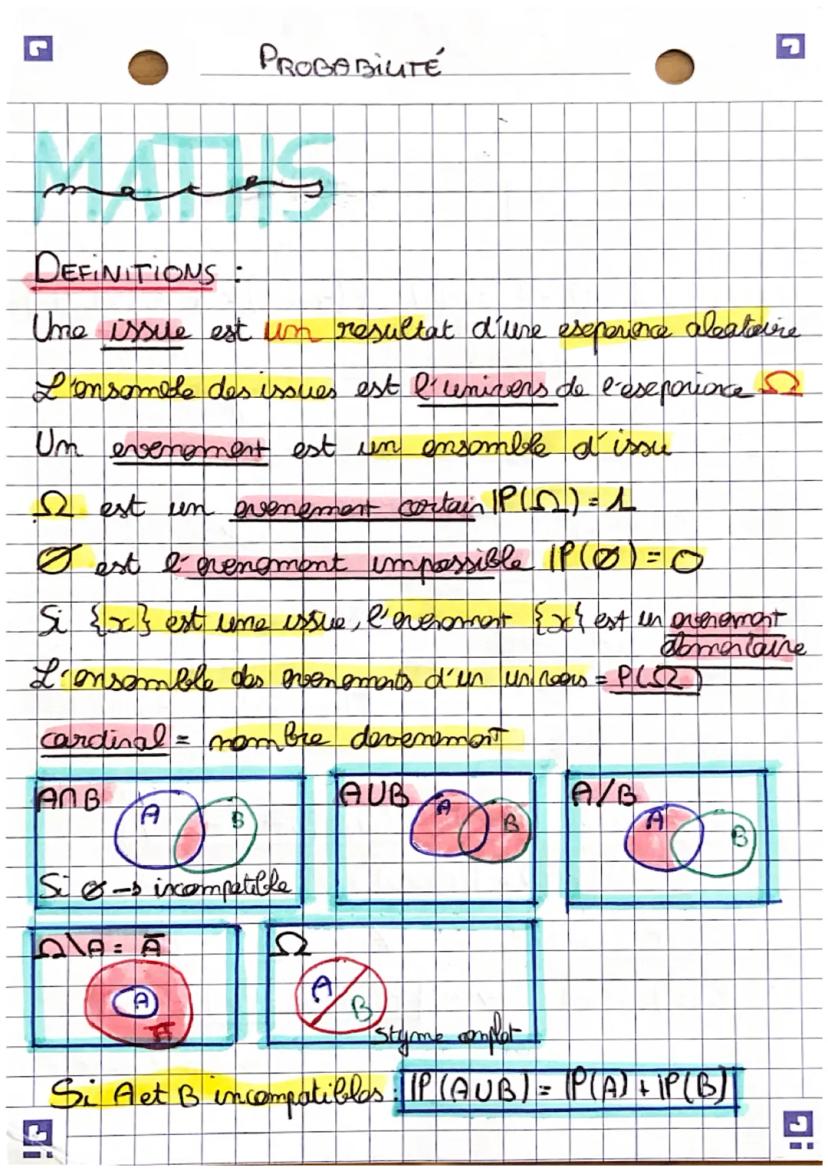 PROBABILITÉ
MATHS
maths
DEFINITIONS :
Une issue est un resultat d'une eseperience aleatoire
L'ensemble des issues est l'univers de l'eseperience Ω
Un evenement est un ensemble d'issu
Ω est un evenement certain IP(Ω) = 1
Ø est l'evenement impossible IP(Ø) = 0
Si {x} est une issue, l'evenement {x} est un evenement
elementaire
L'ensemble des evenements d'un univers = P(Ω)
cardinal = nombre devenement
A∩B A B
Si Ø → incompatible
A∪B A B
A/B A B
Ω\A = Ā A Ā
Ω A B
styme complet
Si A et B incompatibles : IP(A∪B) = IP(A) + IP(B)